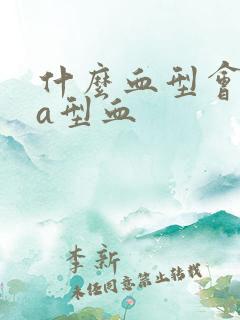 什麼血型會
a型血
李新
未经同意禁止转载